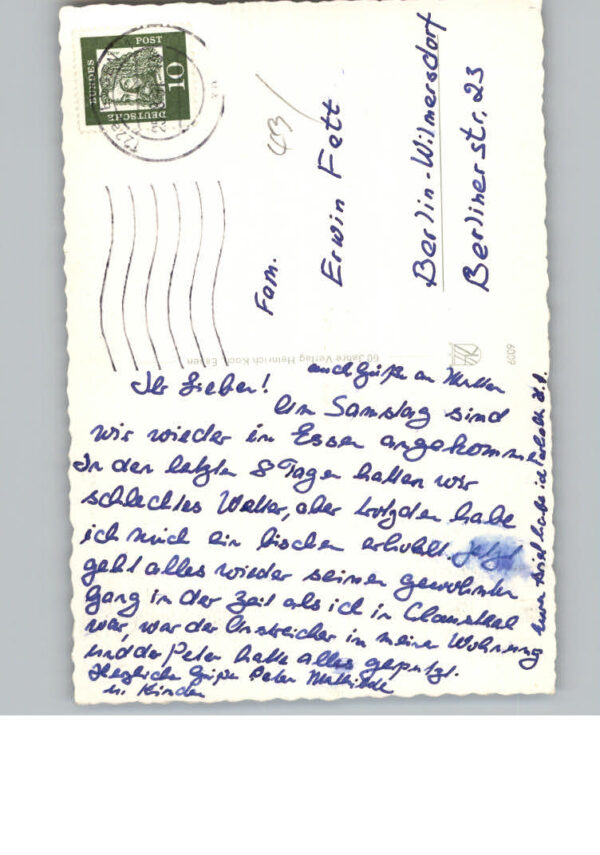 DEUTSCHE
BUNDES
POST
10
43
Fam.
Erwin Fett
Berlin-Wilmersdorf
Berliner str. 23
60 Jahre Verlag Heinrich Koch, Essen
6009
auch Grüße an Mutter
Ihr Lieben!
Am Samstag sind
wir wieder in Essen angekommen
In den letzten 8 Tagen hatten wir
schlechtes Wetter, aber trotzden habe
ich mich ein bischen erhohlt. Jetzt
geht alles wieder seinen gewohnten
Gang in der Zeit als ich in Clausthal
war, war der Anstreicher in meine Wohnung
und der Peter hatte alles geputzt.
Herzliche Grüße Peter Mathilde
u. Kinder
euren Brief habe ich erhalten